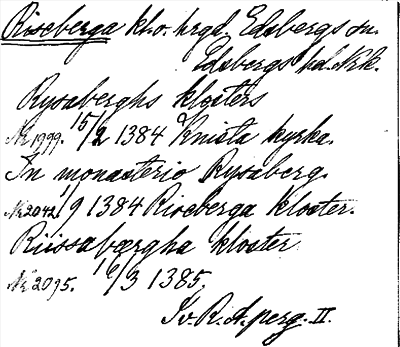 Riseberga kl. o. hrgd. Edsbergs sn.
Edsbergs hd. Nrk.
Rysaberghs klosters
Nr 1999. 15/2 1384 Knista kyrka.
In monasterio Rysaberg.
Nr 2042 1/9 1384 Riseberga kloster.
Riissabærgha kloster
Nr 2095. 16/3 1385.
Sv. R. A. perg. II.